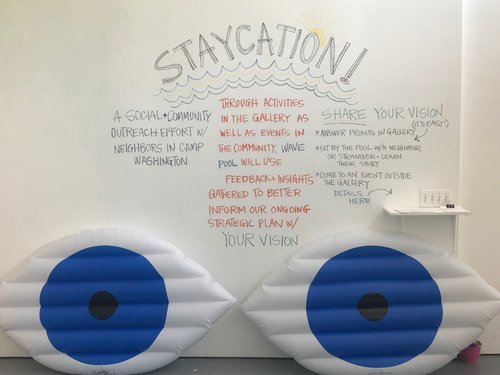 STAYCATION!
A SOCIAL + COMMUNITY
OUTREACH EFFORT W/
NEIGHBORS IN CAMP
WASHINGTON
THROUGH ACTIVITIES
IN THE GALLERY AS
WELL AS EVENTS IN
THE COMMUNITY, WAVE
POOL WILL USE
FEEDBACK + INSIGHTS
GATHERED TO BETTER
INFORM OUR ONGOING
STRATEGIC PLAN W/
YOUR VISION
SHARE YOUR VISION
(IT'S EASY!)
*ANSWER PROMPTS IN GALLERY
*SIT BY THE POOL W/ A NEIGHBOR
OR STRANGER + LEARN
THEIR STORY
*COME TO AN EVENT OUTSIDE
THE GALLERY
DETAILS
HERE